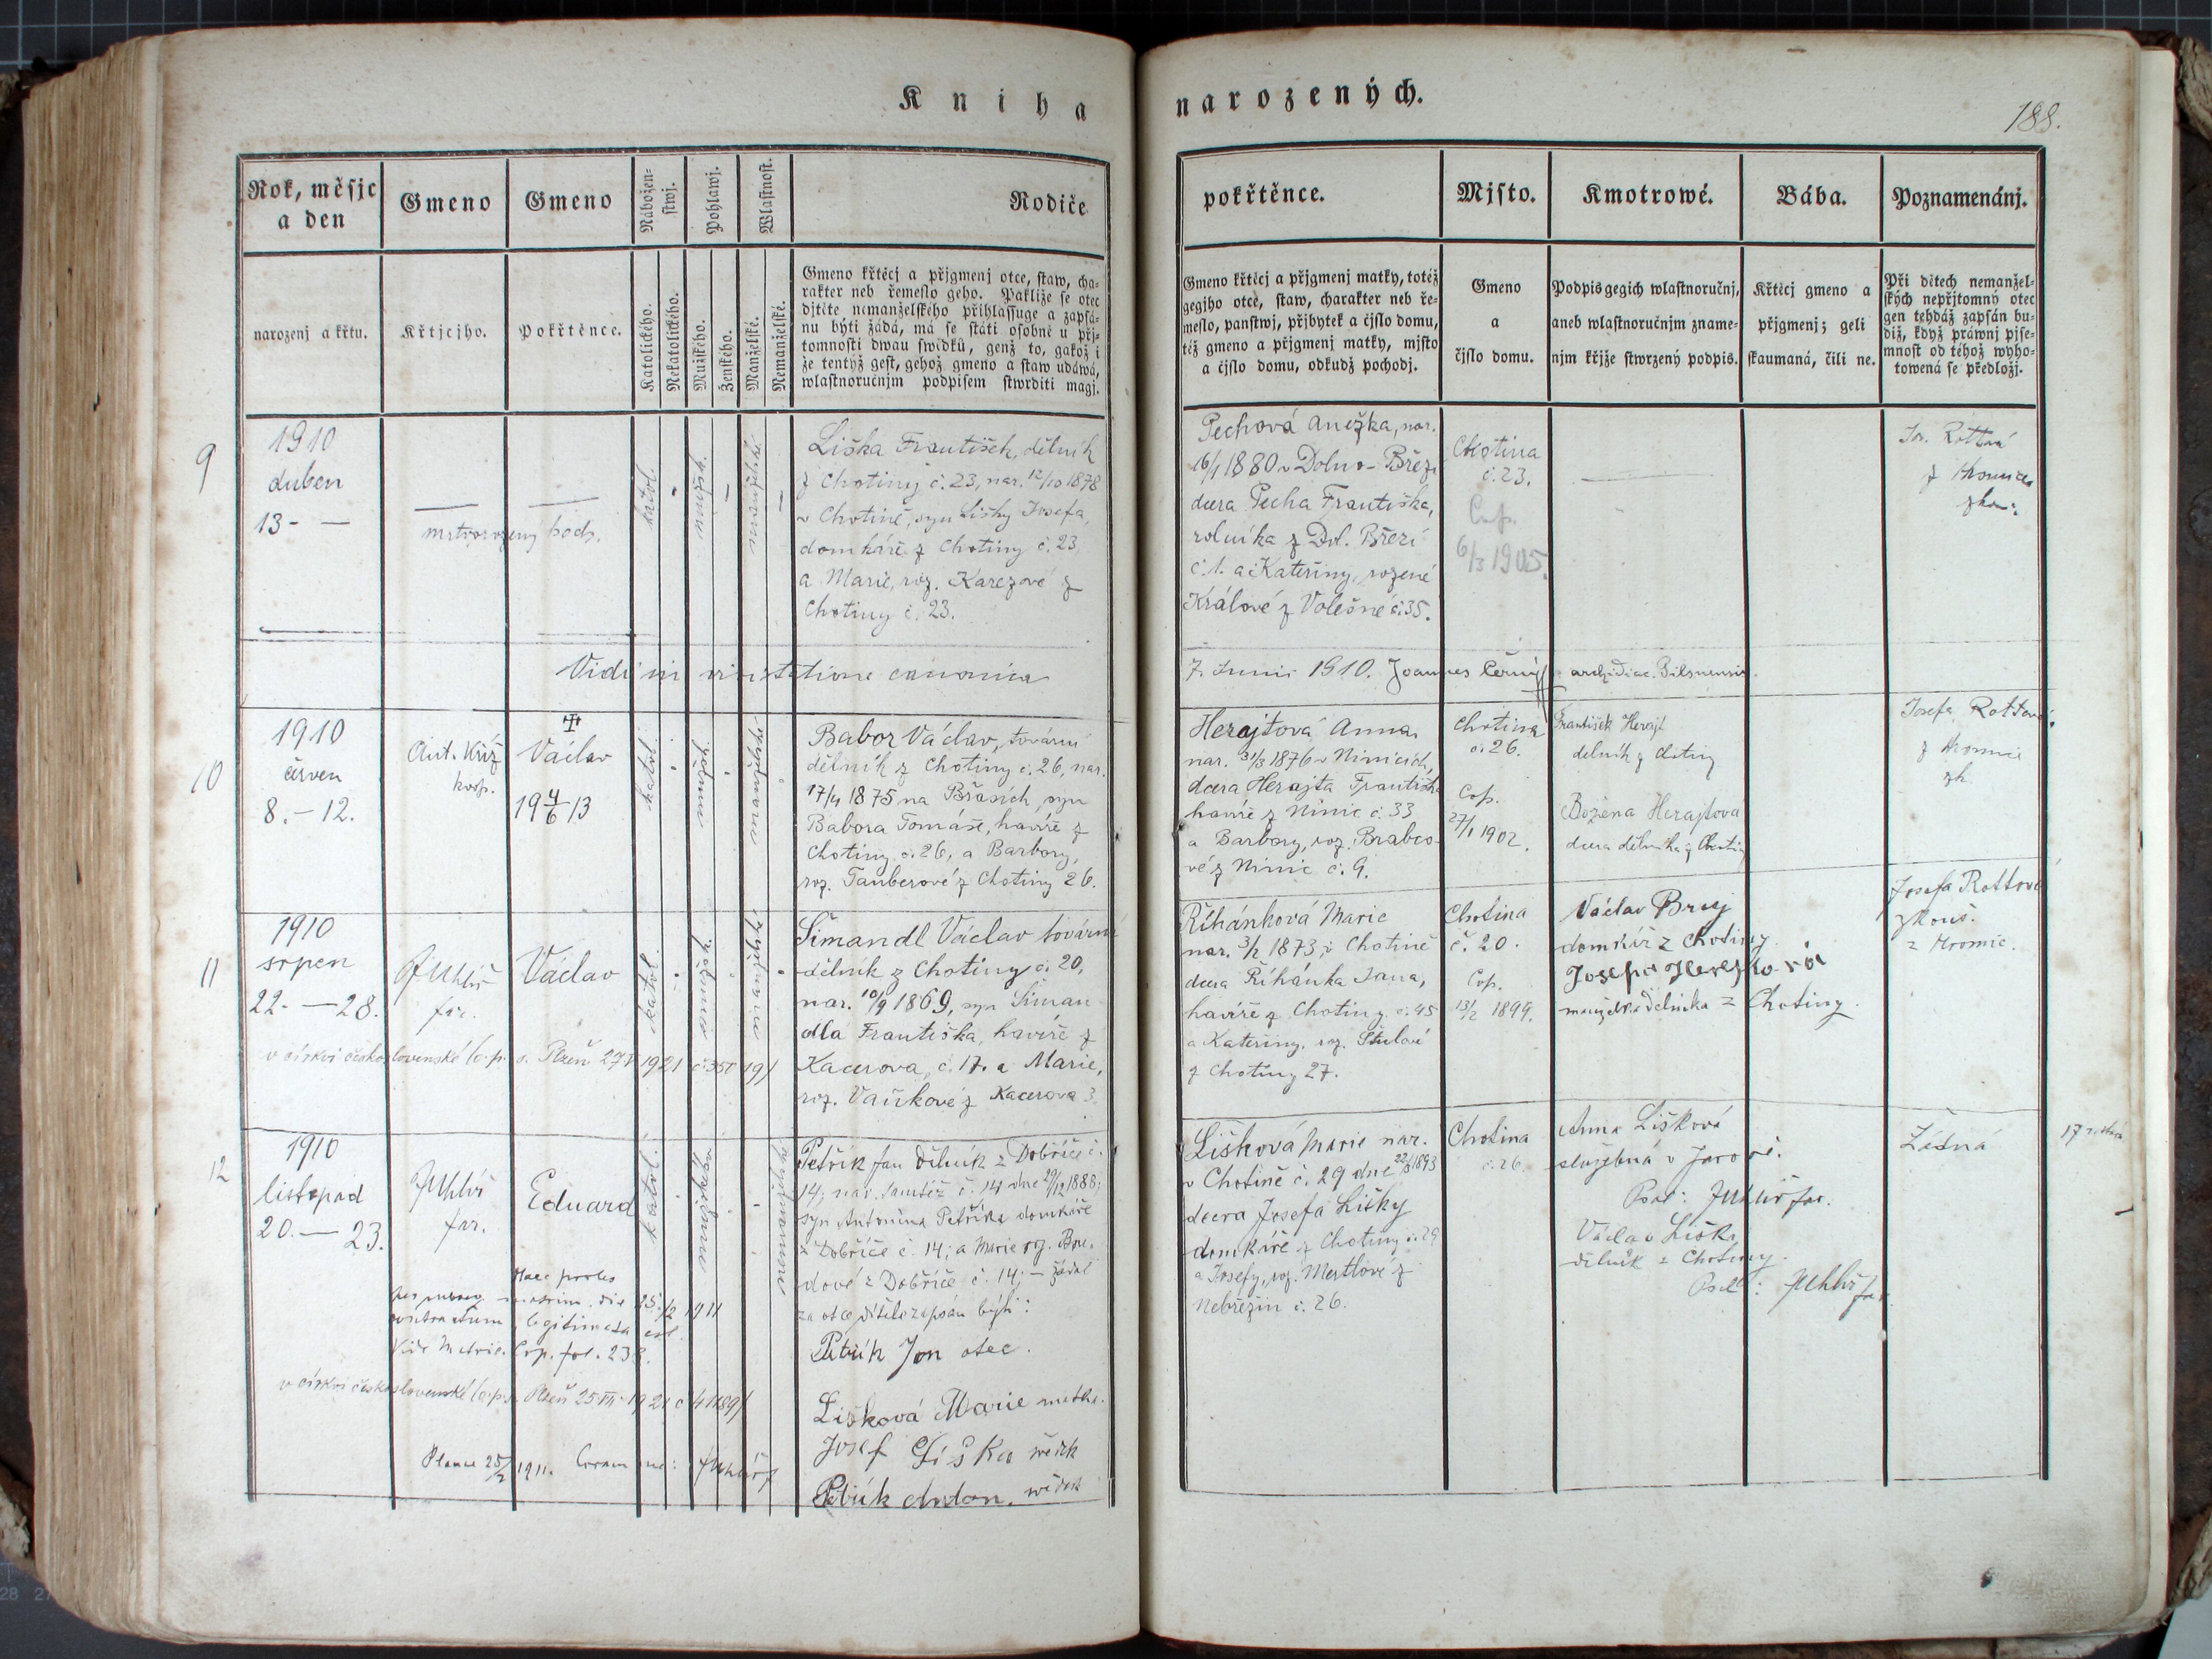 Kniha
narozených.
188.
Rok, měsjc
a den
Gmeno
Gmeno
Nábožen-
stwj.
Pohlawj.
Wlastnost.
Rodiče
pokřtěnce.
Mjsto.
Kmotrowé.
Bába.
Poznamenánj.
narozenj a křtu.
Křtjcjho.
Pokřtěnce.
Katolického.
Nekatolického.
Mužského.
Ženského.
Manželské.
Nemanželské.
Gmeno křtěcj a přjgmenj otce, staw, cha-
rakter neb řemeslo geho. Pakliže se otec
djtěte nemanželského přihlassuge a zapsá-
nu býti žádá, má se státi osobně u přj-
tomnosti dwau swědků, genž to, gakož i
že tentýž gest, gehož gmeno a staw udáwá,
wlastnoručnjm podpisem stwrditi magj.
Gmeno křtěcj a přjgmenj matky, totéž
gegjho otce, staw, charakter neb ře-
meslo, panstwj, přjbytek a čjslo domu,
též gmeno a přjgmenj matky, mjsto
a čjslo domu, odkudž pochodj.
Gmeno
a
čjslo domu.
Podpis gegich wlastnoručnj,
aneb wlastnoručnjm zname-
njm křjže stwrzený podpis.
Křtěcj gmeno a
přjgmenj; geli
skaumaná, čili ne.
Při dětech nemanžel-
ských nepřjtomný otec
gen tehdáž zapsán bu-
diž, když práwnj pjse-
mnost od téhož wyho-
towená se předložj.
9
1910
duben
13 - —
mrtvorozený
katol.
manželské
Liška František, dělník
z Chotiny č. 23, nar. 12/10 1878
v Chotině, syn Lišky Josefa,
domkáře z Chotiny č. 23,
a Marie, roz. Karezové z
Chotiny č. 23.
Pechová Anežka, nar.
16/1 1880 v Dolno-Březí
dcera Pecha Františka,
rolníka z Dol. Březí
č. 1. a Kateřiny, rozené
Králové z Volešné č. 35.
Chotina
č. 23.
Cop.
6/3 1905.
Vidi in visitatione canonica
7. Junii 1910. Joannes Černý archidiac. Pilsnensis.
10
1910
červen
8. - 12.
Ant. Kříž
koop.
Václav
19 4/6 13
katol.
manželské
Babor Václav, tovární
dělník z Chotiny č. 26, nar.
17/4 1875 na Břasích, syn
Babora Tomáše, havíře z
Chotiny č. 26, a Barbory,
roz. Tauberové z Chotiny 26.
Herajtová Anna
nar. 31/3 1876 v Nimicích,
dcera Herajta Františka
havíře z Nimic č. 33
a Barbory, roz. Brabco-
vé z Nimic č. 9.
Chotina
č. 26.
Cop.
27/1 1902.
František Herajt
dělník z Chotiny
Božena Herajtová
dcera dělníka z Chotiny
Josefa Rottová
z Hromic
zk.
11
1910
srpen
22. — 28.
far.
Václav
katol.
manželské
Šimandl Václav tovární
dělník z Chotiny č. 20,
nar. 10/9 1869, syn Šiman
dla Františka, havíře z
Kacerova, č. 17. a Marie,
roz. Vaňkové z Kacerova 3.
v církvi československé
1921
Říhánková Marie
nar. 3/2 1873 v Chotině
dcera Říhánka Jana,
havíře z Chotiny č. 45
a Kateřiny, roz.
z Chotiny 27.
Chotina
č. 20.
Cop.
13/2 1899.
Václav
domkář z Chotiny
Josefa
manželka dělníka z Chotiny.
Josefa Rottová
zkouš.
z Hromic.
12
1910
listopad
20. — 23.
far.
Eduard
katol.
Haec proles
per subseq. matrim. die 25./2 1911
contractum legitimata est
Vide Matric. Cop. fol. 238.
v církvi československé
25/2 1911. Coram me:
Petřík Jan dělník z Dobříče č.
14; nar. tamtéž č. 14 dne 29/12 1888;
syn Antonína Petříka domkáře
z Dobříče č. 14; a Marie roz.
dové z Dobříče č. 14; — žádal
za otce dítěte zapsán býti:
Petřík Jan otec.
Lišková Marie matka.
Josef Liška svědek
Petřík Anton. svědek
Lišková Marie nar.
v Chotině č. 29 dne 22/8 1893
dcera Josefa Lišky
domkáře z Chotiny č. 29
a Josefy, roz. Mertlové z
Nebřezin č. 26.
Chotina
č. 26.
Anna Lišková
služebná v
Václav Liška
dělník z Chotiny.
Žádná